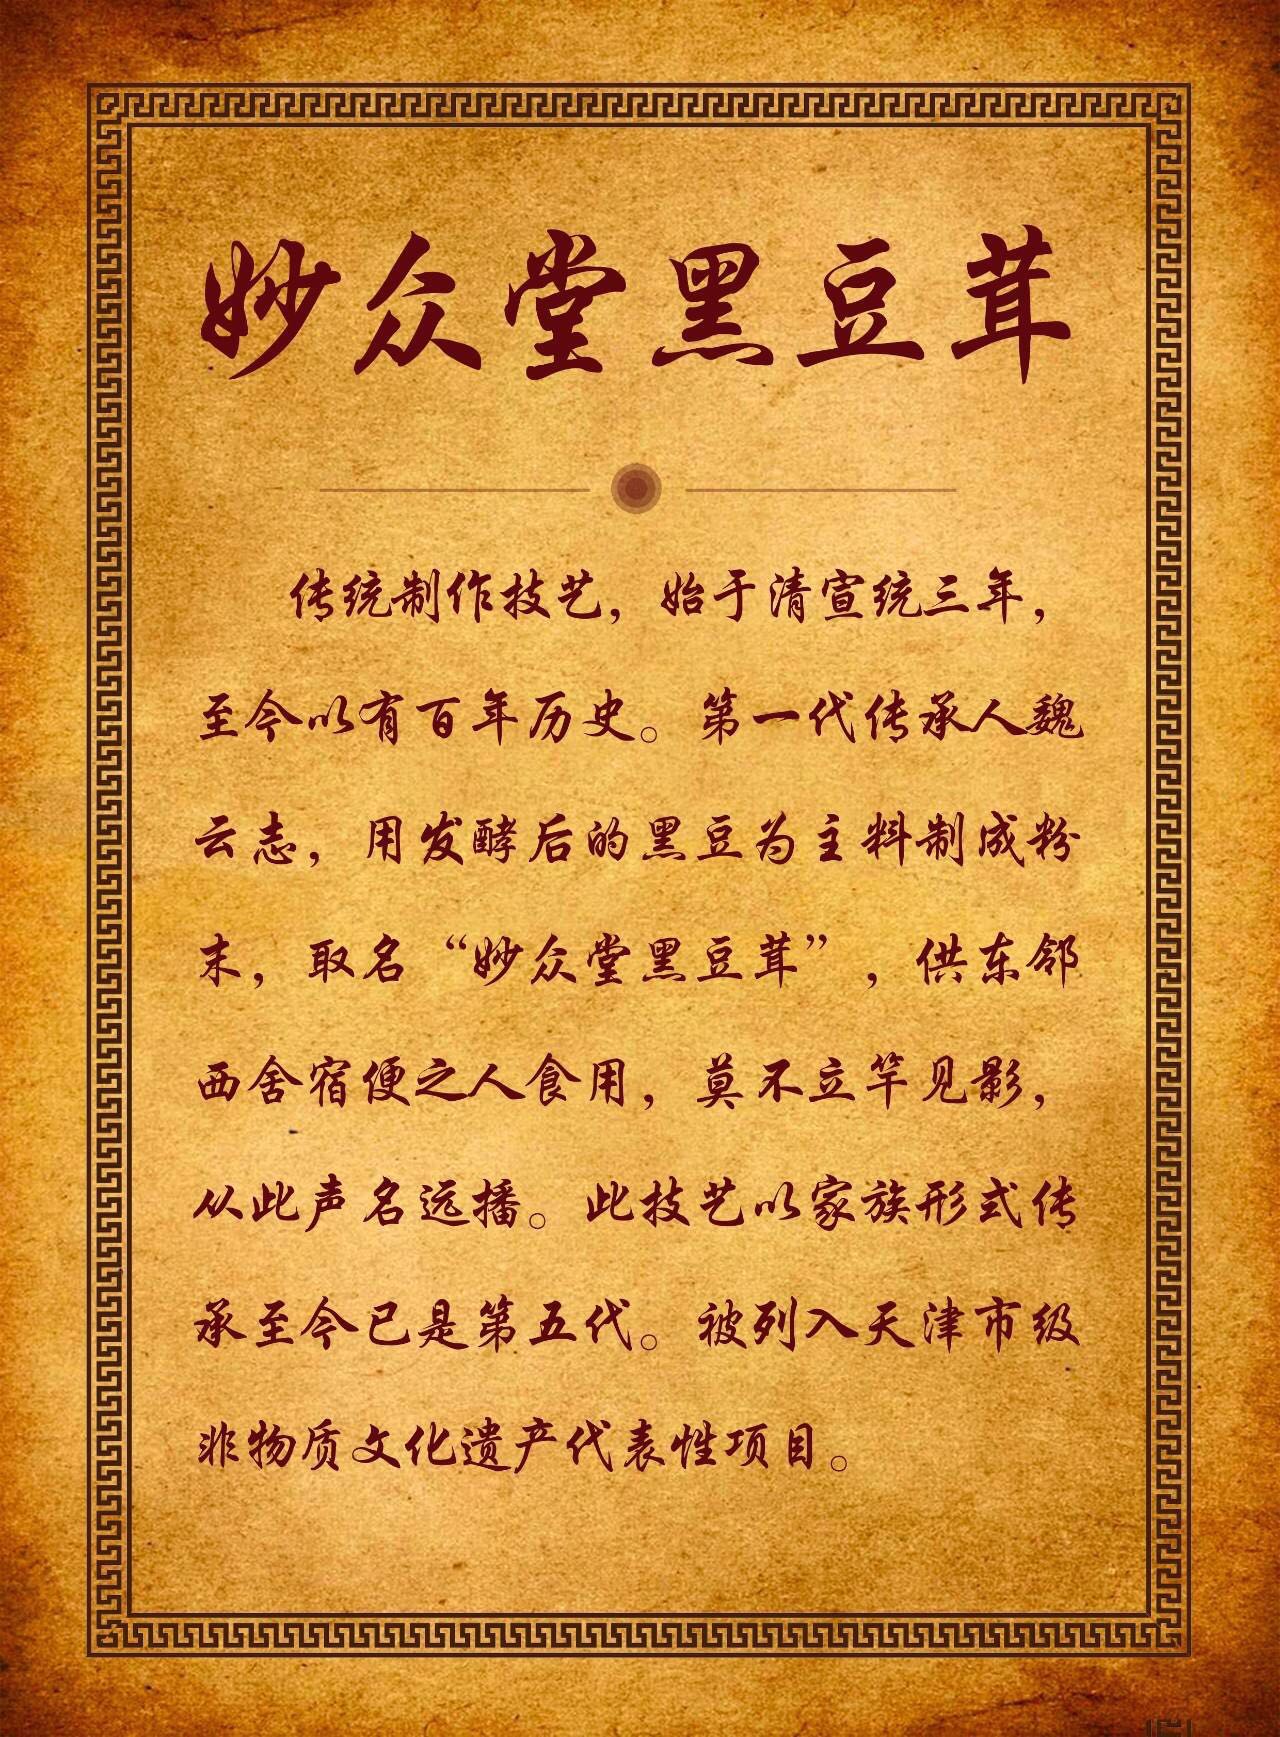 妙众堂黑豆茸
传统制作技艺，始于清宣统三年，
至今以有百年历史。第一代传承人魏
云志，用发酵后的黑豆为主料制成粉
末，取名“妙众堂黑豆茸”，供东邻
西舍宿便之人食用，莫不立竿见影，
从此声名远播。此技艺以家族形式传
承至今已是第五代。被列入天津市级
非物质文化遗产代表性项目。